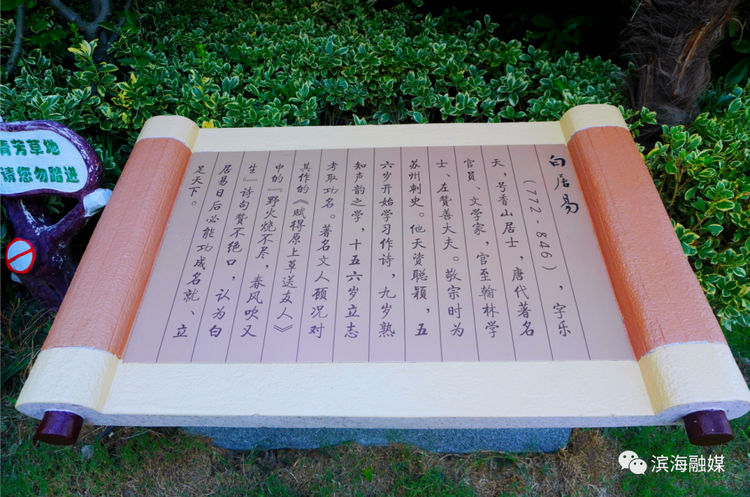 白居易
（772·846），字乐
天，号香山居士，唐代著名
官員、文学家，官至翰林学
士、左赞善大夫。敬宗时为
苏州刺史。他天資聪颖，五
六岁开始学习作诗，九岁熟
知声韵之学，十五六岁立志
考取功名。著名文人顾况对
其作的《赋得原上草送友人》
中的『野火烧不尽，春风吹又
生』诗句赞不绝口，认为白
居易日后必能功成名就、立
足天下。
青芳草地
请您勿踏进
滨海融媒